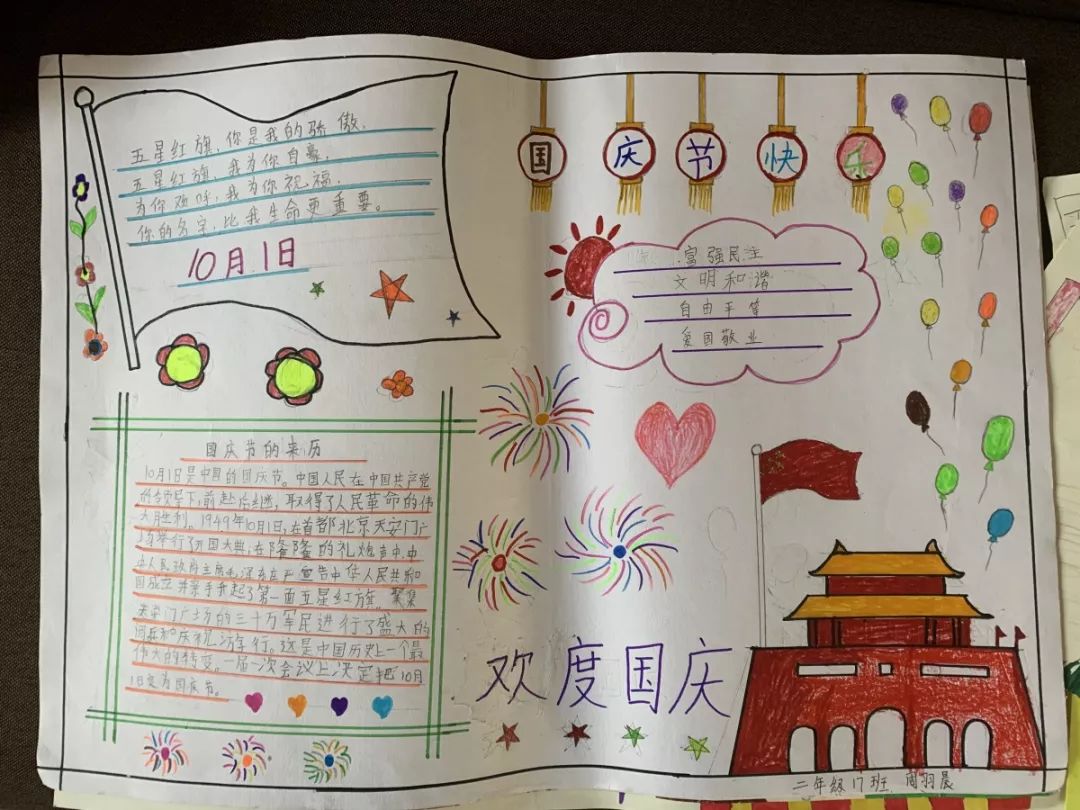 五星红旗，你是我的骄傲，
五星红旗，我为你自豪，
为你欢呼，我为你祝福，
你的名字，比我生命更重要。
10月1日
国庆节快乐
富强民主
文明和谐
自由平等
爱国敬业
国庆节的来历
10月1日是中国的国庆节。中国人民在中国共产党
的领导下，前赴后继，取得了人民革命的伟
大胜利。1949年10月1日，在首都北京天安门广
场举行了开国大典，在隆隆的礼炮声中，中
央人民政府主席毛泽东庄严宣告中华人民共和
国成立并亲手升起了第一面五星红旗。聚集
天安门广场的三十万军民进行了盛大的
阅兵和庆祝游行。这是中国历史上一个最
伟大的转变。一届一次会议上决定把10月
1日定为国庆节。
欢度国庆
二年级17班 周羽晨